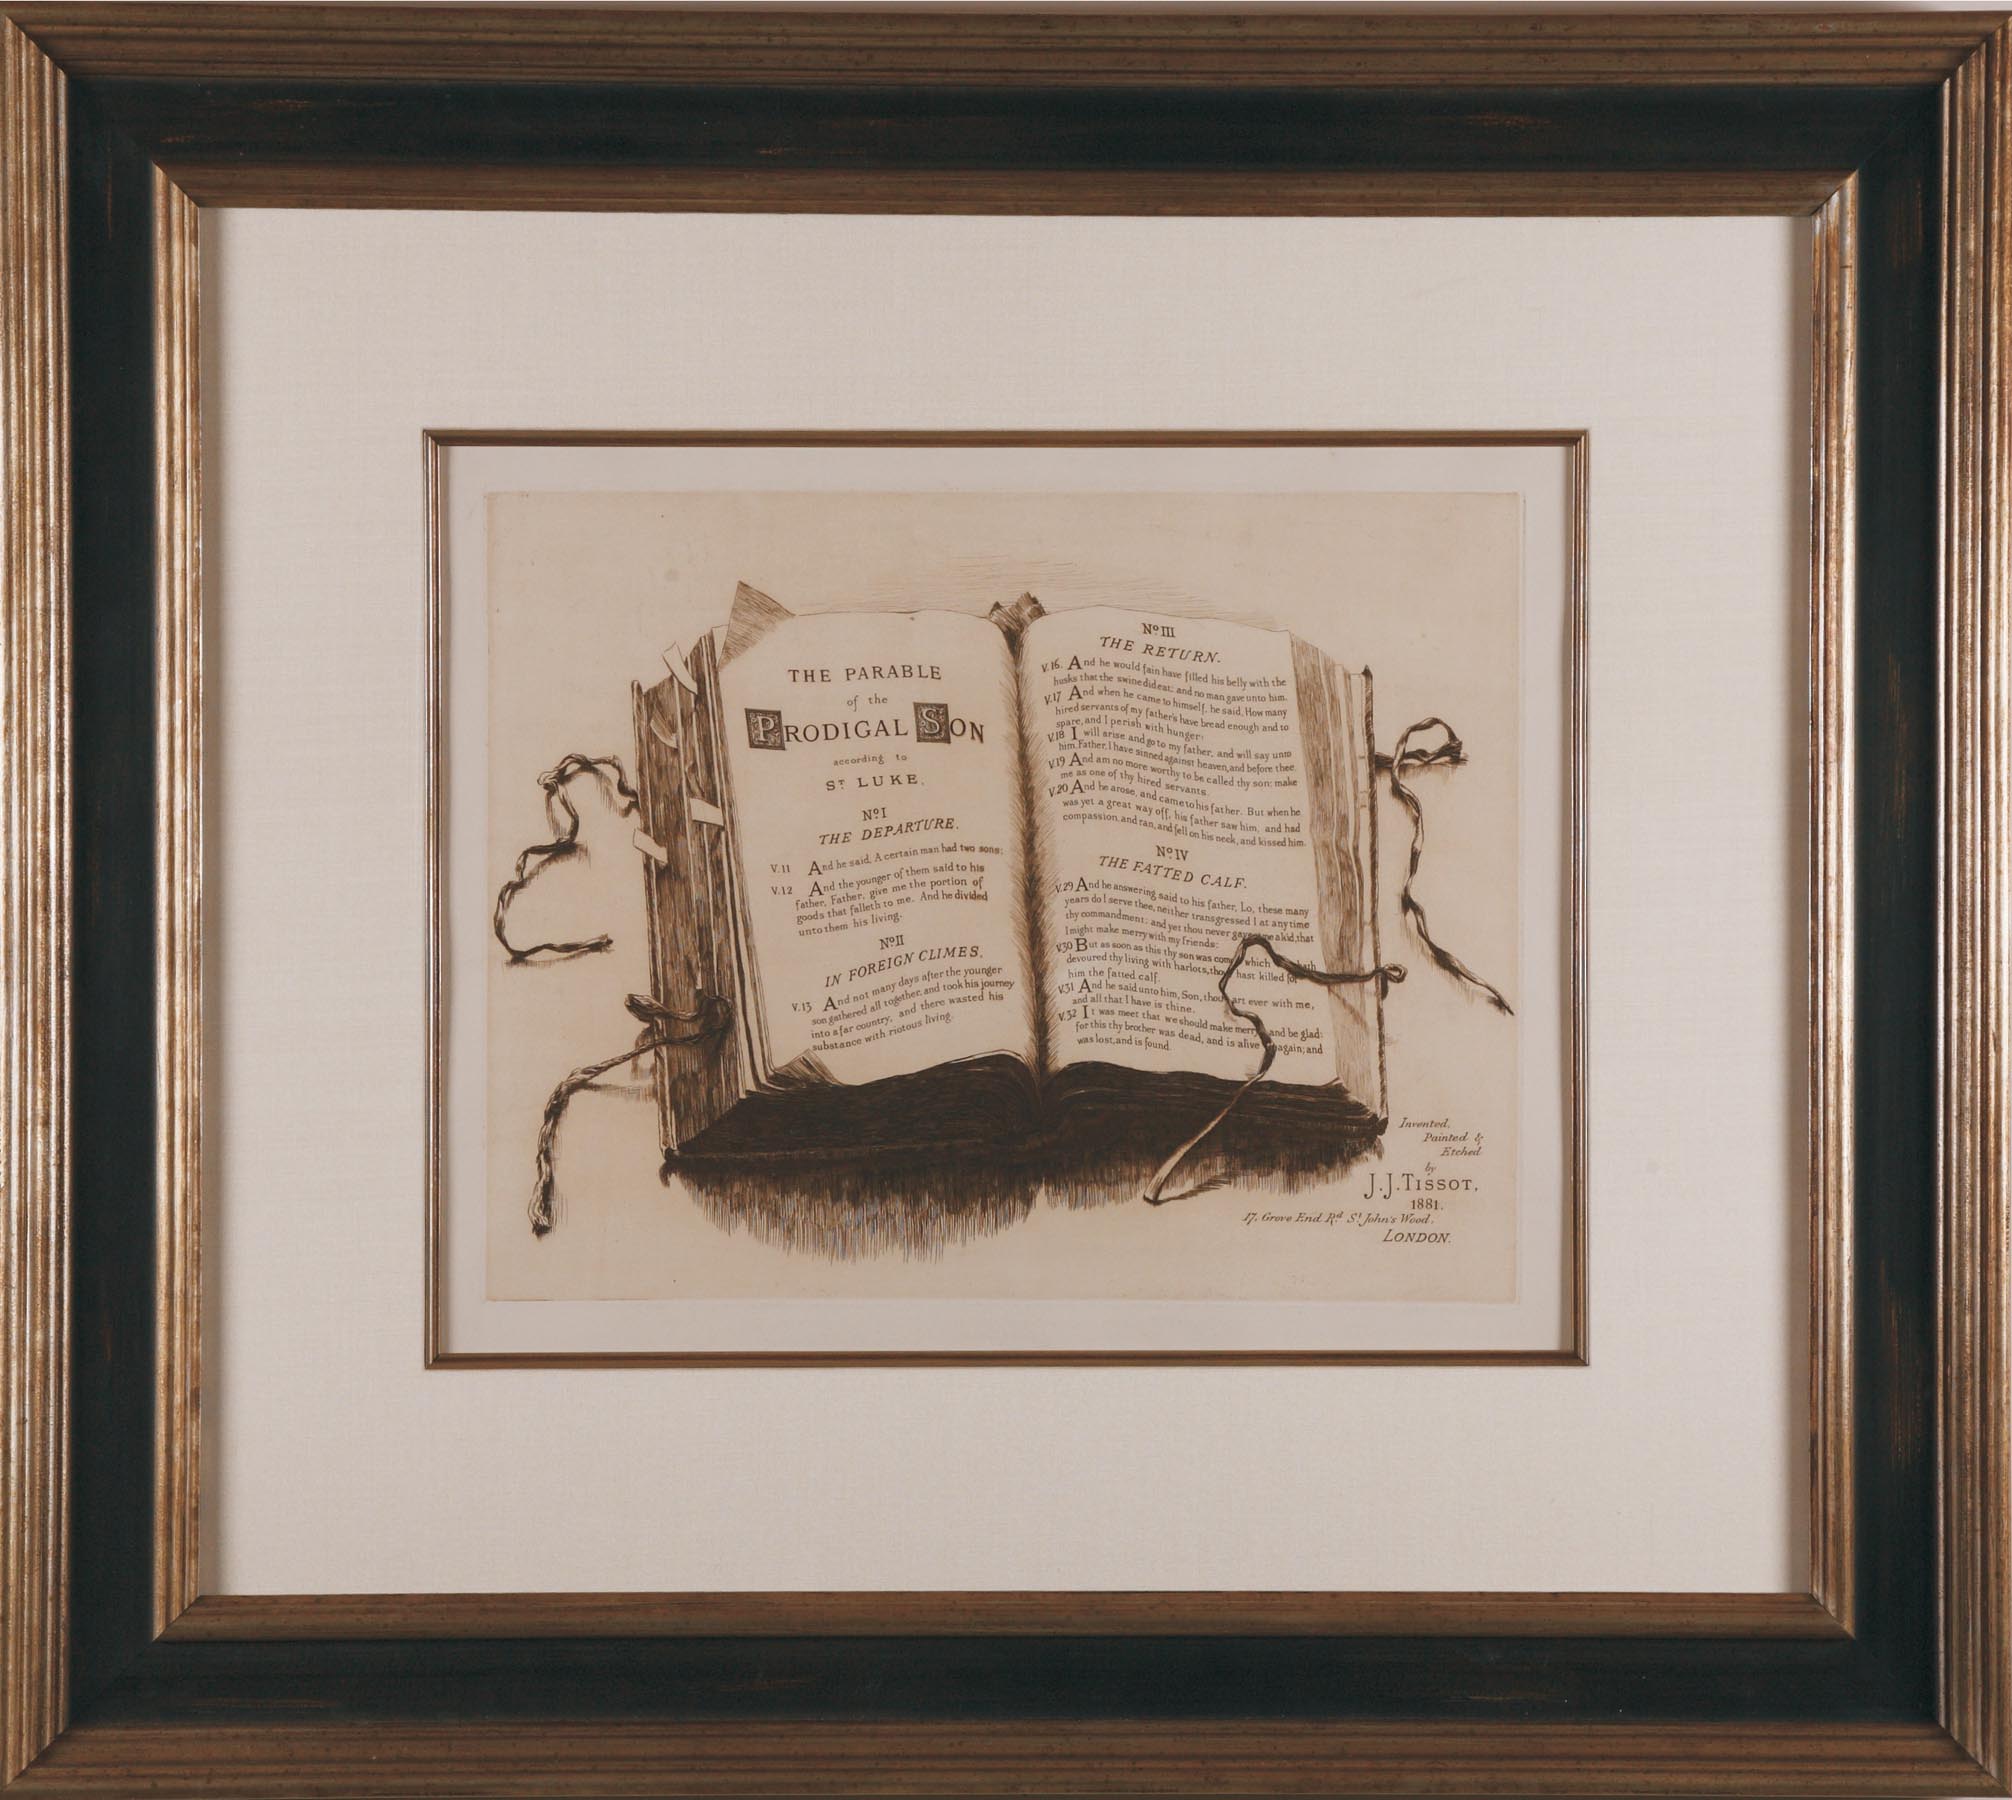 THE PARABLE
of the
PRODIGAL SON
according to
ST LUKE.
No I
THE DEPARTURE.
V.11 And he said, A certain man had two sons:
V.12 And the younger of them said to his
father, Father, give me the portion of
goods that falleth to me. And he divided
unto them his living.
No II
IN FOREIGN CLIMES.
V.13 And not many days after the younger
son gathered all together, and took his journey
into a far country, and there wasted his
substance with riotous living.
No III
THE RETURN.
V.16. And he would fain have filled his belly with the
husks that the swine did eat: and no man gave unto him.
V.17 And when he came to himself, he said, How many
hired servants of my father's have bread enough and to
spare, and I perish with hunger:
V.18 I will arise and go to my father, and will say unto
him, Father, I have sinned against heaven, and before thee.
V.19 And am no more worthy to be called thy son: make
me as one of thy hired servants.
V.20 And he arose, and came to his father. But when he
was yet a great way off, his father saw him, and had
compassion, and ran, and fell on his neck, and kissed him.
No IV
THE FATTED CALF.
V.29 And he answering said to his father, Lo, these many
years do I serve thee, neither transgressed I at any time
thy commandment: and yet thou never gavest me a kid, that
I might make merry with my friends:
V.30 But as soon as this thy son was come, which hath
devoured thy living with harlots, thou hast killed for
him the fatted calf.
V.31 And he said unto him, Son, thou art ever with me,
and all that I have is thine.
V.32 It was meet that we should make merry and be glad:
for this thy brother was dead, and is alive again; and
was lost, and is found.
Invented,
Painted &
Etched
by
J.J. TISSOT,
1881.
17, Grove End Rd St John's Wood,
LONDON.